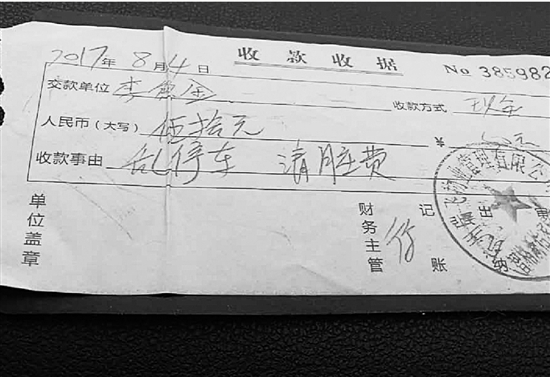 收款收据
2017年8月4日 No 385982
交款单位 李 收款方式 现金
人民币(大写) 伍拾元
收款事由 乱停车 清障费
单位盖章 财务主管 记账 出纳
管理有限公